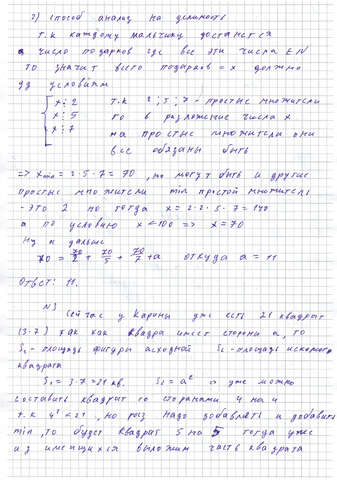 2) способ анализ на делимость
т.к каждому мальчику достанется
число подарков где все эти числа ∈ N
то значит всего подарков = x должно
уд условиям
{ x ⋮ 2 т.к 2; 5; 7 - простые множители
x ⋮ 5 то в разложение числа x
x ⋮ 7 на простые множители они
все обязаны быть
=> xmin = 2·5·7 = 70, но могут быть и другие
простые множители min простой множитель
- это 2 но тогда x = 2·2·5·7 = 140
а по условию x < 100 => x = 70
ну и дальше
70 = 70/2 + 70/5 + 70/7 + a откуда a = 11
Ответ: 11.
N3
Сейчас у Карины уже есть 21 квадрат
(3·7) так как квадрат имеет стороны a, то
S1 - площадь фигуры исходной S2 - площадь искомого
квадрата
S1 = 3·7 = 21 кв. S2 = a² и уже можно
составить квадрат со сторонами 4 на 4
т.к 4² < 21, но раз надо добавлять и добавить
min, то будет квадрат 5 на 5 тогда уже
из имеющихся выложим часть квадрата